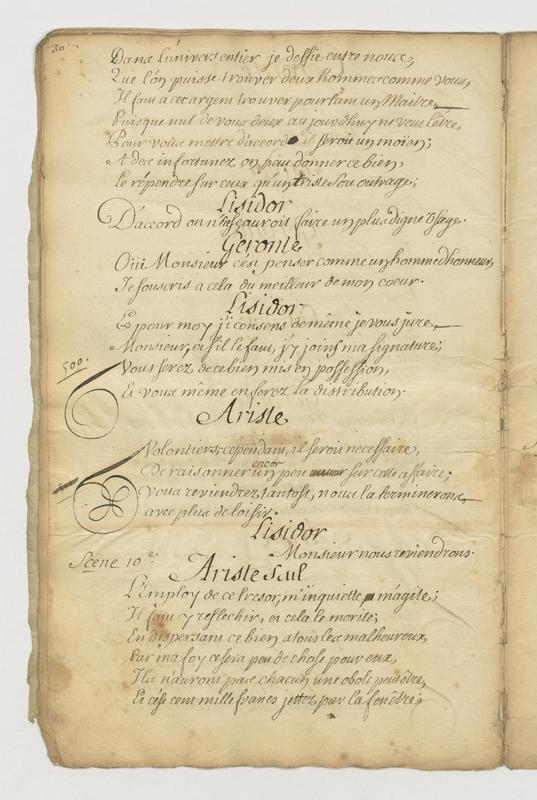 30
Dans l'univers entier je deffie entre nous,
Que l'on puisse trouver deux hommes comme vous,
Il faut a cet argent trouver pourtant un Maitre,
Puisque nul de vous deux aujourdhuy ne veut l'être,
Pour vous mettre d'accord il seroit un moïen;
A des infortunez on peu donner ce bien,
Le répendre sur ceux qu'un triste sort outrage;
Lisidor
D'accord on n'en sçauroit faire un plus digne usage.
Geronte
Oüi Monsieur c'est penser comme un homme d'honneur,
Je souscris a cela du meilleur de mon coeur.
Lisidor
Et pour moy j'i consens de même je vous jure,
Monsieur, et s'il le faut, j'y joins ma signature;
500.
Vous serez de ce bien mis en possession,
Et vous même en ferez la distribution.
Ariste
Volontiers; cependant, il seroit necessaire,
De raisonner encor un peu sur cette affaire;
Vous reviendrez tantost, nous la terminerons,
avec plus de loisir.
Lisidor
Monsieur nous reviendrons.
Scene 10e
Ariste seul
L'Employ de ce tresor, m'inquiette m'agite;
Il faut y reflechir, et cela le merite;
En dispersant ce bien a tous les malheureux,
Par ma foy ce sera peu de chose pour eux,
Ils n'auront pas chacun une obole peut être,
Et c'est cent mille francs jettez par la fenêtre;